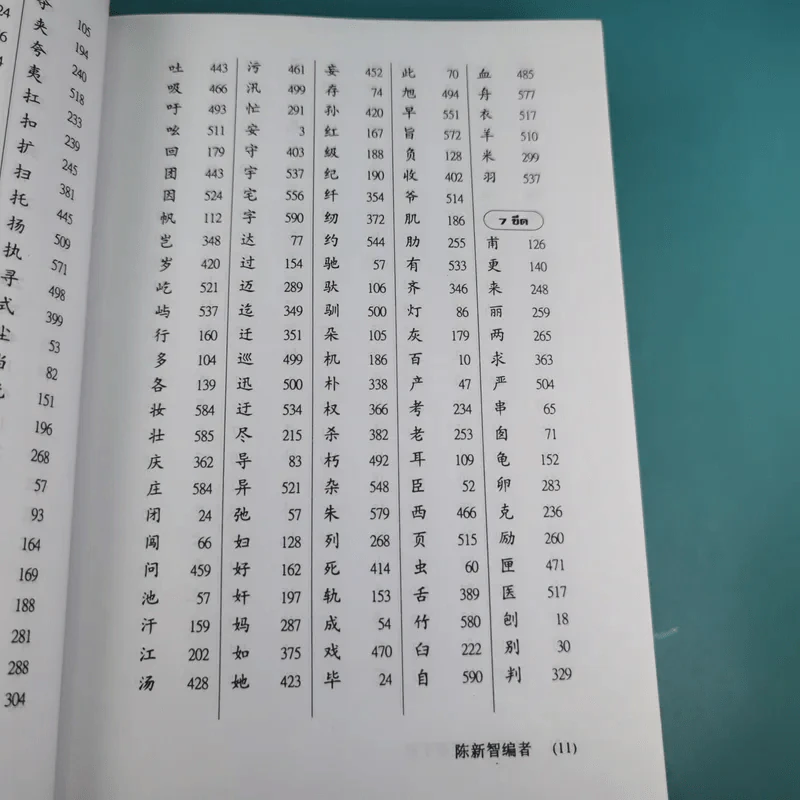 24
夹 194
夸 240
夷 518
扛 233
扣 239
扩 245
扫 381
托 445
扬 509
执 571
寻 498
式 399
尘 53
当 82
151
196
268
57
93
164
169
188
281
288
304
吐 443
吸 466
吁 493
吆 511
回 179
团 443
因 524
帆 112
岂 348
岁 420
屹 521
屿 537
行 160
多 104
各 139
妆 584
壮 585
庆 362
庄 584
闭 24
闯 66
问 459
池 57
汗 159
江 202
汤 428
污 461
汛 499
忙 291
安 3
守 403
宇 537
宅 556
字 590
达 77
过 154
迈 289
迄 349
迁 351
巡 499
迅 500
迂 534
尽 215
导 83
异 521
弛 57
妇 128
好 162
奸 197
妈 287
如 375
她 423
妄 452
存 74
孙 420
红 167
级 188
纪 190
纤 354
纫 372
约 544
驰 57
驮 106
驯 500
朵 105
机 186
朴 338
权 366
杀 382
朽 492
杂 548
朱 579
列 268
死 414
轨 153
成 54
戏 470
毕 24
此 70
旭 494
早 551
旨 572
负 128
收 402
爷 514
肌 186
肋 255
有 533
齐 346
灯 86
灰 179
百 10
产 47
考 234
老 253
耳 109
臣 52
西 466
页 515
虫 60
舌 389
竹 580
臼 222
自 590
血 485
舟 577
衣 517
羊 510
米 299
羽 537
7 ขีด
甫 126
更 140
来 248
丽 259
两 265
求 363
严 504
串 65
囱 71
龟 152
卵 283
克 236
励 260
匣 471
医 517
刨 18
别 30
判 329
陈新智编者 (11)